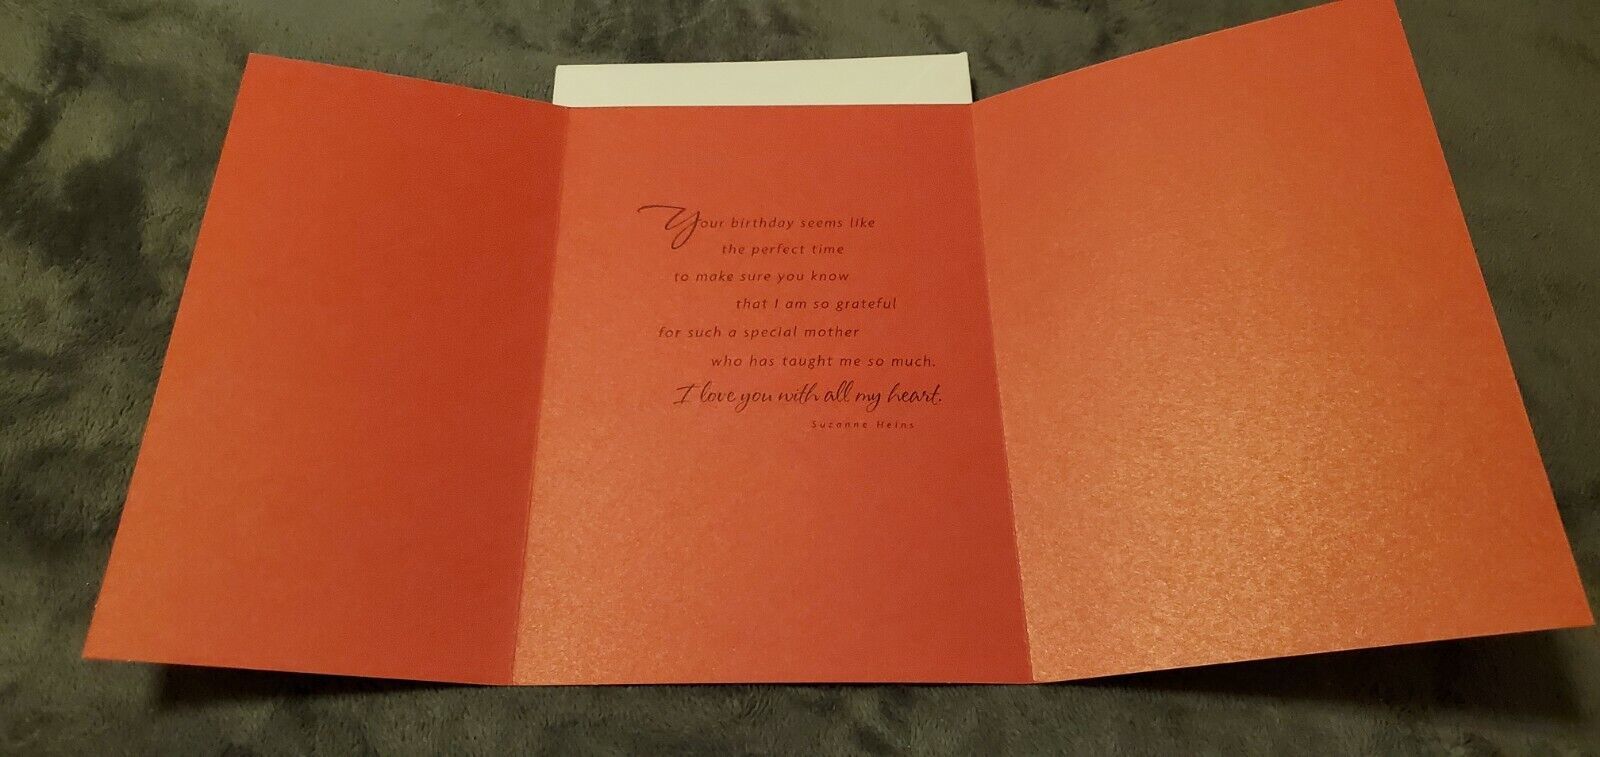 Your birthday seems like
the perfect time
to make sure you know
that I am so grateful
for such a special mother
who has taught me so much.
I love you with all my heart.
Suzanne Heins